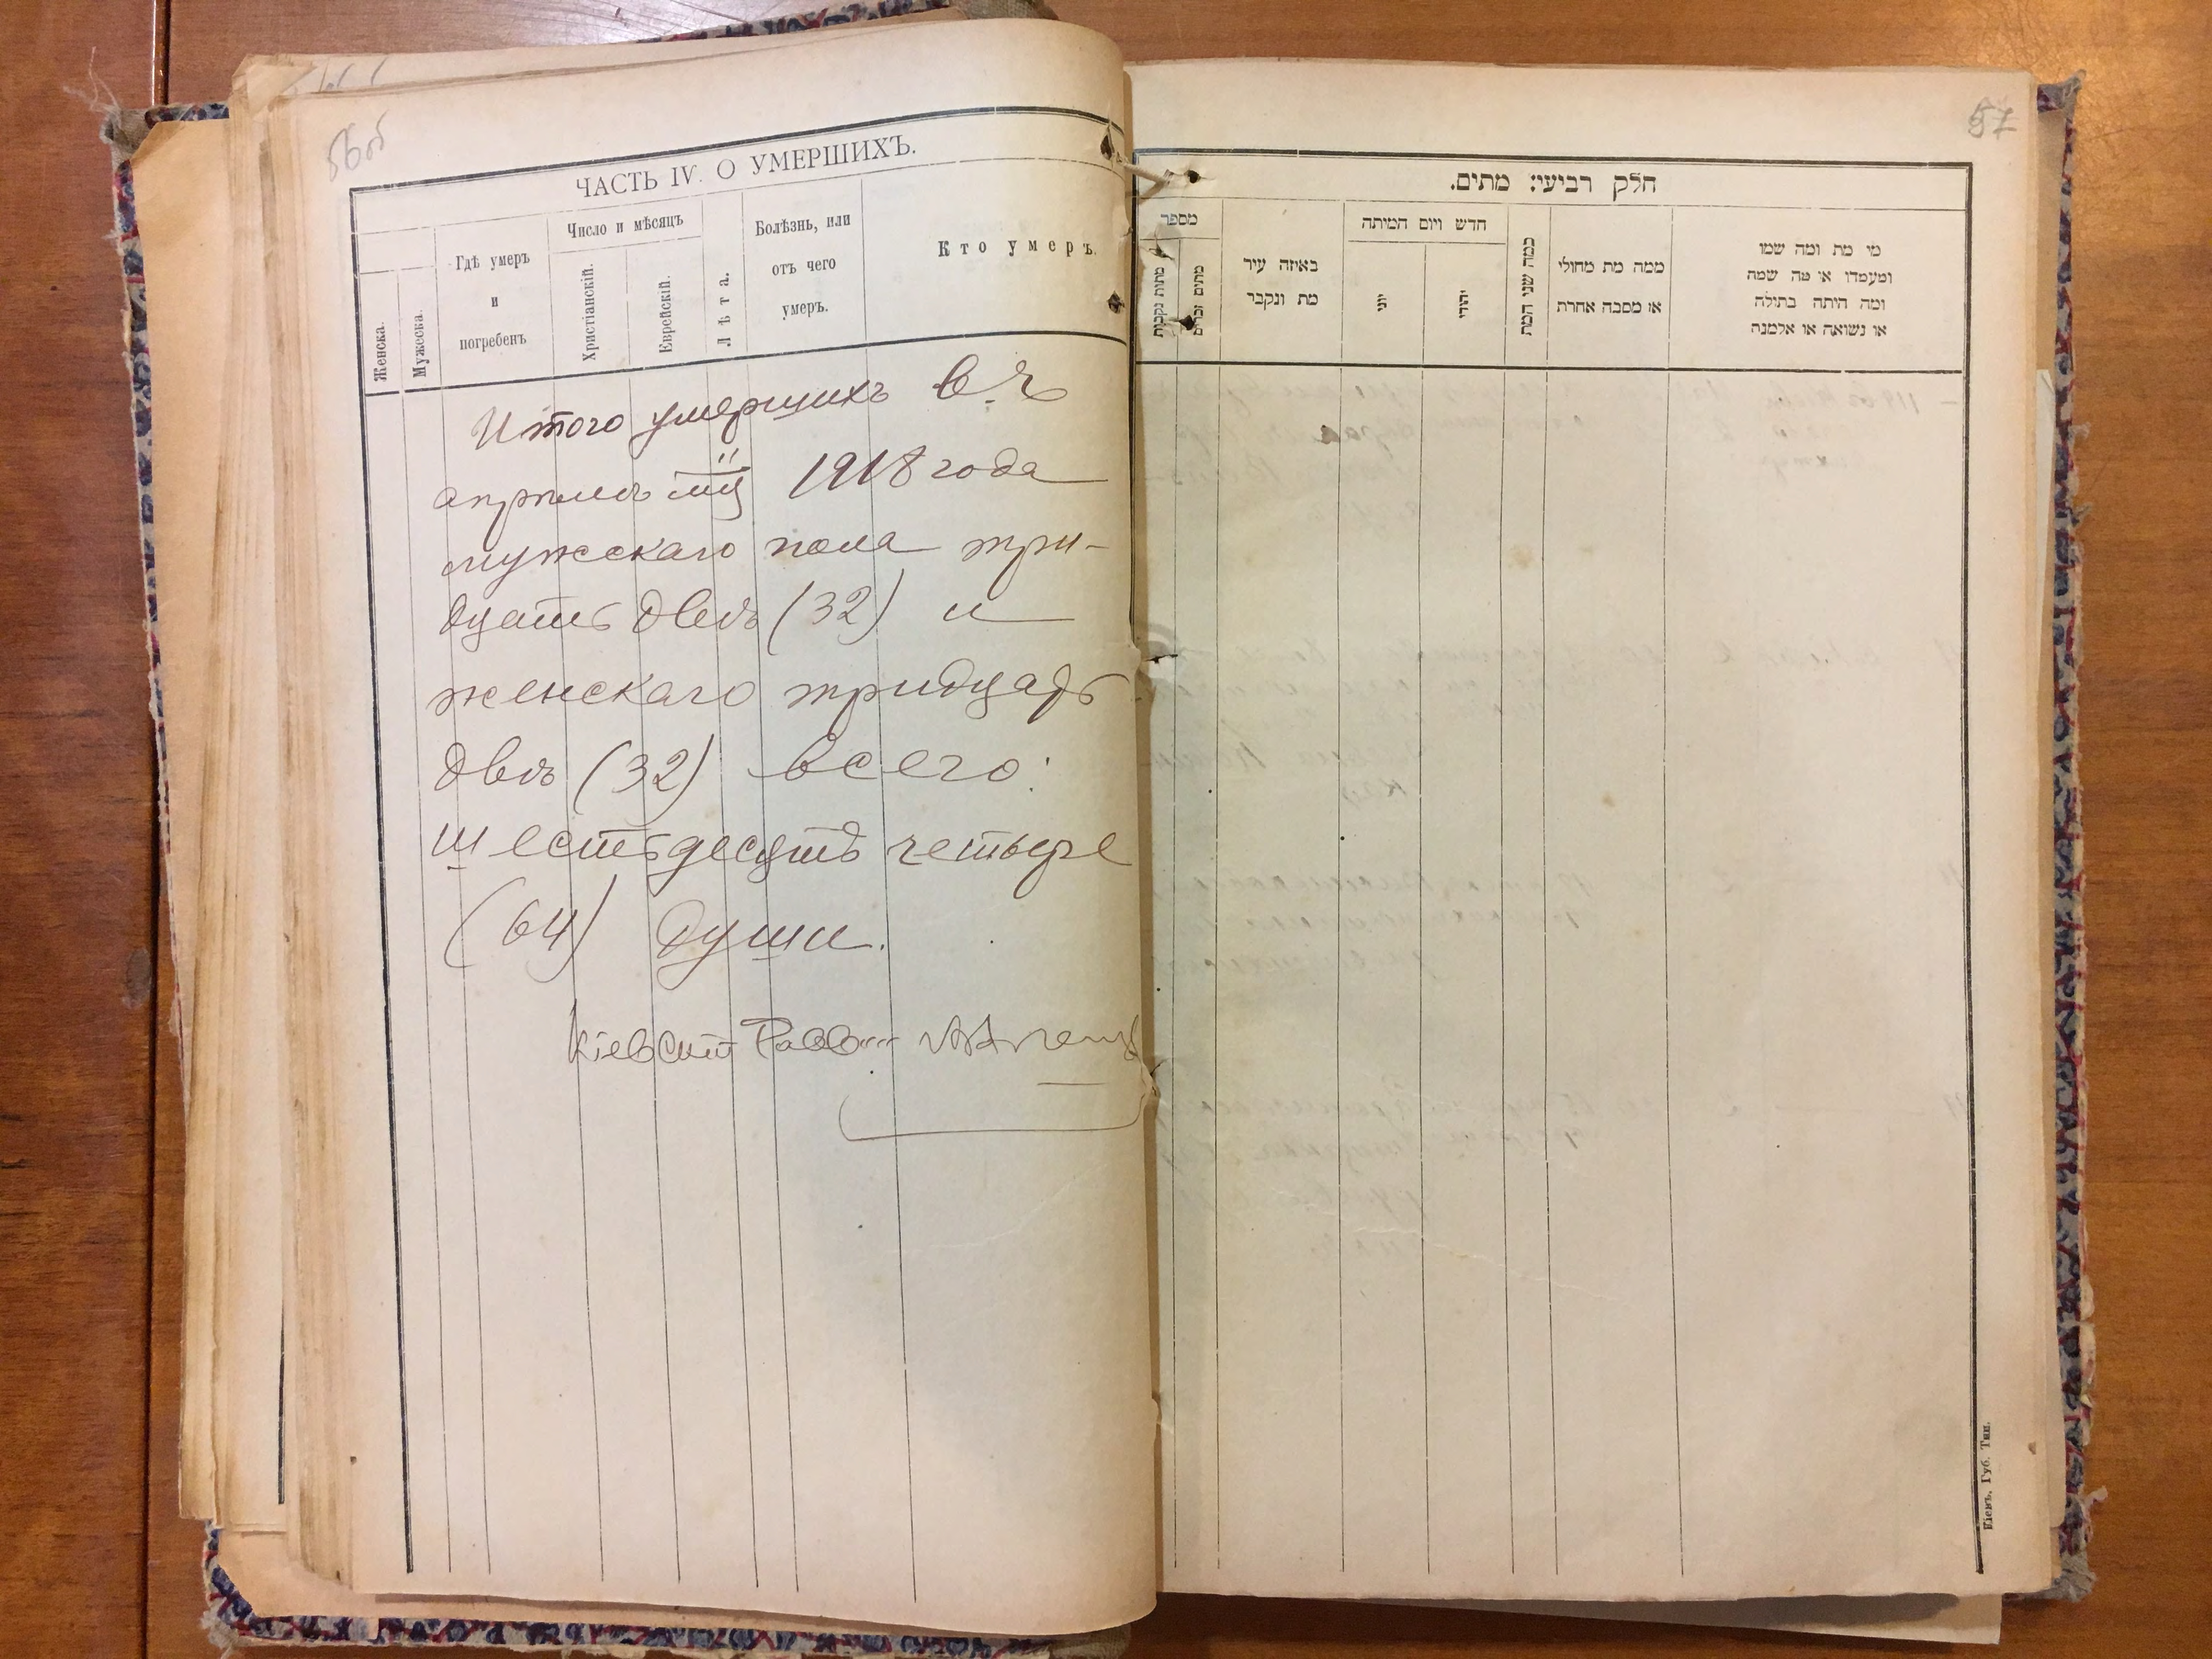 56об
ЧАСТЬ IV. О УМЕРШИХЪ.
Женска.
Мужеска.
Гдѣ умеръ
и
погребенъ
Число и мѣсяцъ
Христіанскій.
Еврейскій.
Лѣта.
Болѣзнь, или
отъ чего
умеръ.
Кто умеръ.
Итого умершихъ в
апрѣлѣ мц 1918 года
мужскаго пола три-
дцать двѣ (32) и
женскаго тридцать
двѣ (32) всего:
шестьдесятъ четыре
(64) души.
Кіевскій Раввин
57
חלק רביעי: מתים.
מספר
מתות נקבות
מתים זכרים
באיזה עיר
מת ונקבר
חדש ויום המיתה
יוני
יהודי
כמה שני המת
ממה מת מחולי
או מסבה אחרת
מי מת ומה שמו
ומעמדו או מה שמה
ומה היתה בתולה
או נשואה או אלמנה
Кіевъ, Губ. Тип.